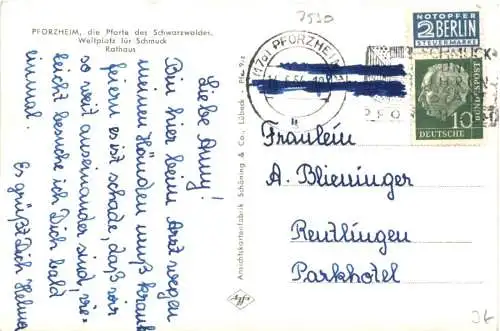 7530
PFORZHEIM, die Pforte des Schwarzwaldes,
Weltplatz für Schmuck
Rathaus
Liebe Anny!
Bin hier beim Arzt wegen
meinen Händen muß krank
feiern es ist schade, daß wir
so weit auseinander sind, vie-
leicht besuche ich Dich bald
einmal.
Es grüßt Dich Helma
Ansichtskartenfabrik Schöning & Co., Lübeck
agfa
(17a) PFORZHEIM
NOTOPFER
2 BERLIN
STEUERMARKE
DEUTSCHE
BUNDESPOST
10
Fräulein
A. Blieninger
Reutlingen
Parkhotel